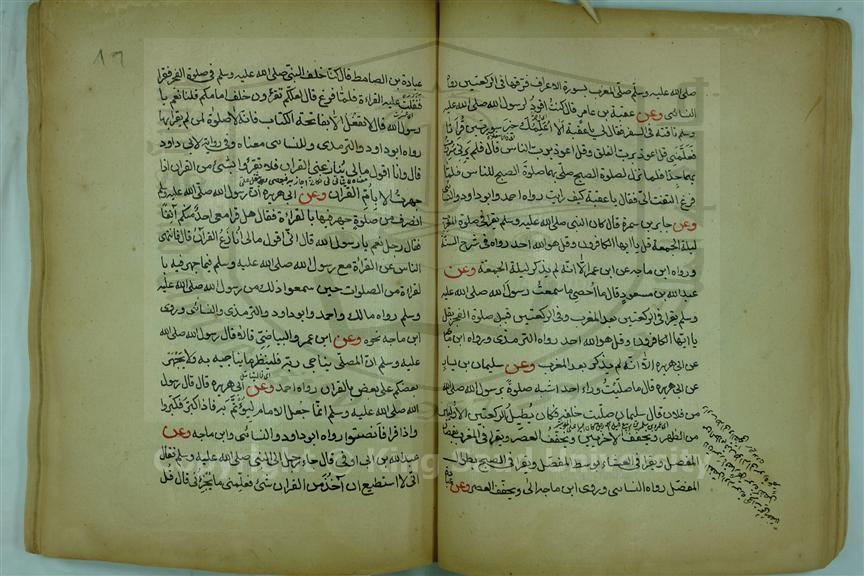 صلى الله عليه وسلم صلى المغرب بسورة الاعراف فرقها فى الركعتين رواه
النسائى وعن عقبة بن عامر قال كنت اقود لرسول الله صلى الله عليه
وسلم ناقته فى السفر فقال لى يا عقبة الا اعلمك خير سورتين قرأتا
فعلمنى قل اعوذ برب الفلق وقل اعوذ برب الناس قال فلم يرنى سررت
بهما جدا فلما نزل لصلوة الصبح صلى بهما صلوة الصبح للناس فلما
فرغ التفت الى فقال يا عقبة كيف رأيت رواه احمد وابو داود والنسائى
وعن جابر بن سمرة قال كان النبى صلى الله عليه وسلم يقرأ فى صلوة المغرب
ليلة الجمعة قل يا ايها الكافرون وقل هو الله احد رواه فى شرح السنة
ورواه ابن ماجه عن ابن عمر الا انه لم يذكر ليلة الجمعة وعن
عبد الله بن مسعود قال ما احصى ما سمعت رسول الله صلى الله عليه
وسلم يقرأ فى الركعتين بعد المغرب وفى الركعتين قبل صلوة الفجر بقل
يا ايها الكافرون وقل هو الله احد رواه الترمذى ورواه ابن ماجه
عن ابى هريرة الا انه لم يذكر بعد المغرب وعن سليمان بن يسار
عن ابى هريرة قال ما صليت وراء احد اشبه صلوة برسول الله صلى الله
من فلان قال سليمان صليت خلفه فكان يطيل الركعتين الاوليين
من الظهر ويخفف الاخريين ويخفف العصر ويقرأ فى المغرب بقصار
المفصل ويقرأ فى العشاء بوسط المفصل ويقرأ فى الصبح بطوال
المفصل رواه النسائى وروى ابن ماجه الى ويخفف العصر وعن
عبادة بن الصامط قال كنا خلف النبى صلى الله عليه وسلم فى صلوة الفجر فقرأ
فثقلت عليه القراءة فلما فرغ قال لعلكم تقرءون خلف امامكم قلنا نعم يا
رسول الله قال لا تفعلوا الا بفاتحة الكتاب فانه لا صلوة لمن لم يقرأ بها
رواه ابو داود والترمذى وللنسائى معناه وفى رواية لابى داود
قال وانا اقول مالى ينازعنى القران فلا تقرءوا بشئ من القران اذا
جهرت الا بأم القران وعن ابى هريرة ان رسول الله صلى الله عليه وسلم
انصرف من صلوة جهر فيها بالقراءة فقال هل قرأ معى احد منكم آنفا
فقال رجل نعم يا رسول الله قال انى اقول مالى انازع القران قال فانتهى
الناس عن القراءة مع رسول الله صلى الله عليه وسلم فيما جهر فيه با
لقراءة من الصلوات حين سمعوا ذلك من رسول الله صلى الله عليه
وسلم رواه مالك واحمد وابو داود والترمذى والنسائى وروى
ابن ماجه نحوه وعن ابن عمر والبياضى قالا قال رسول الله صلى الله
عليه وسلم ان المصلى يناجى ربه فلينظر ما يناجيه به ولا يجهر
بعضكم على بعض بالقران رواه احمد وعن ابى هريرة قال قال رسول
الله صلى الله عليه وسلم انما جعل الامام ليؤتم به فاذا كبر فكبروا
واذا قرأ فأنصتوا رواه ابو داود والنسائى وابن ماجه وعن
عبد الله بن ابى اوفى قال جاء رجل الى النبى صلى الله عليه وسلم فقال
انى لا استطيع ان آخذ من القران شئ فعلمنى ما يجزئنى قال قل
Copyright © King Saud University